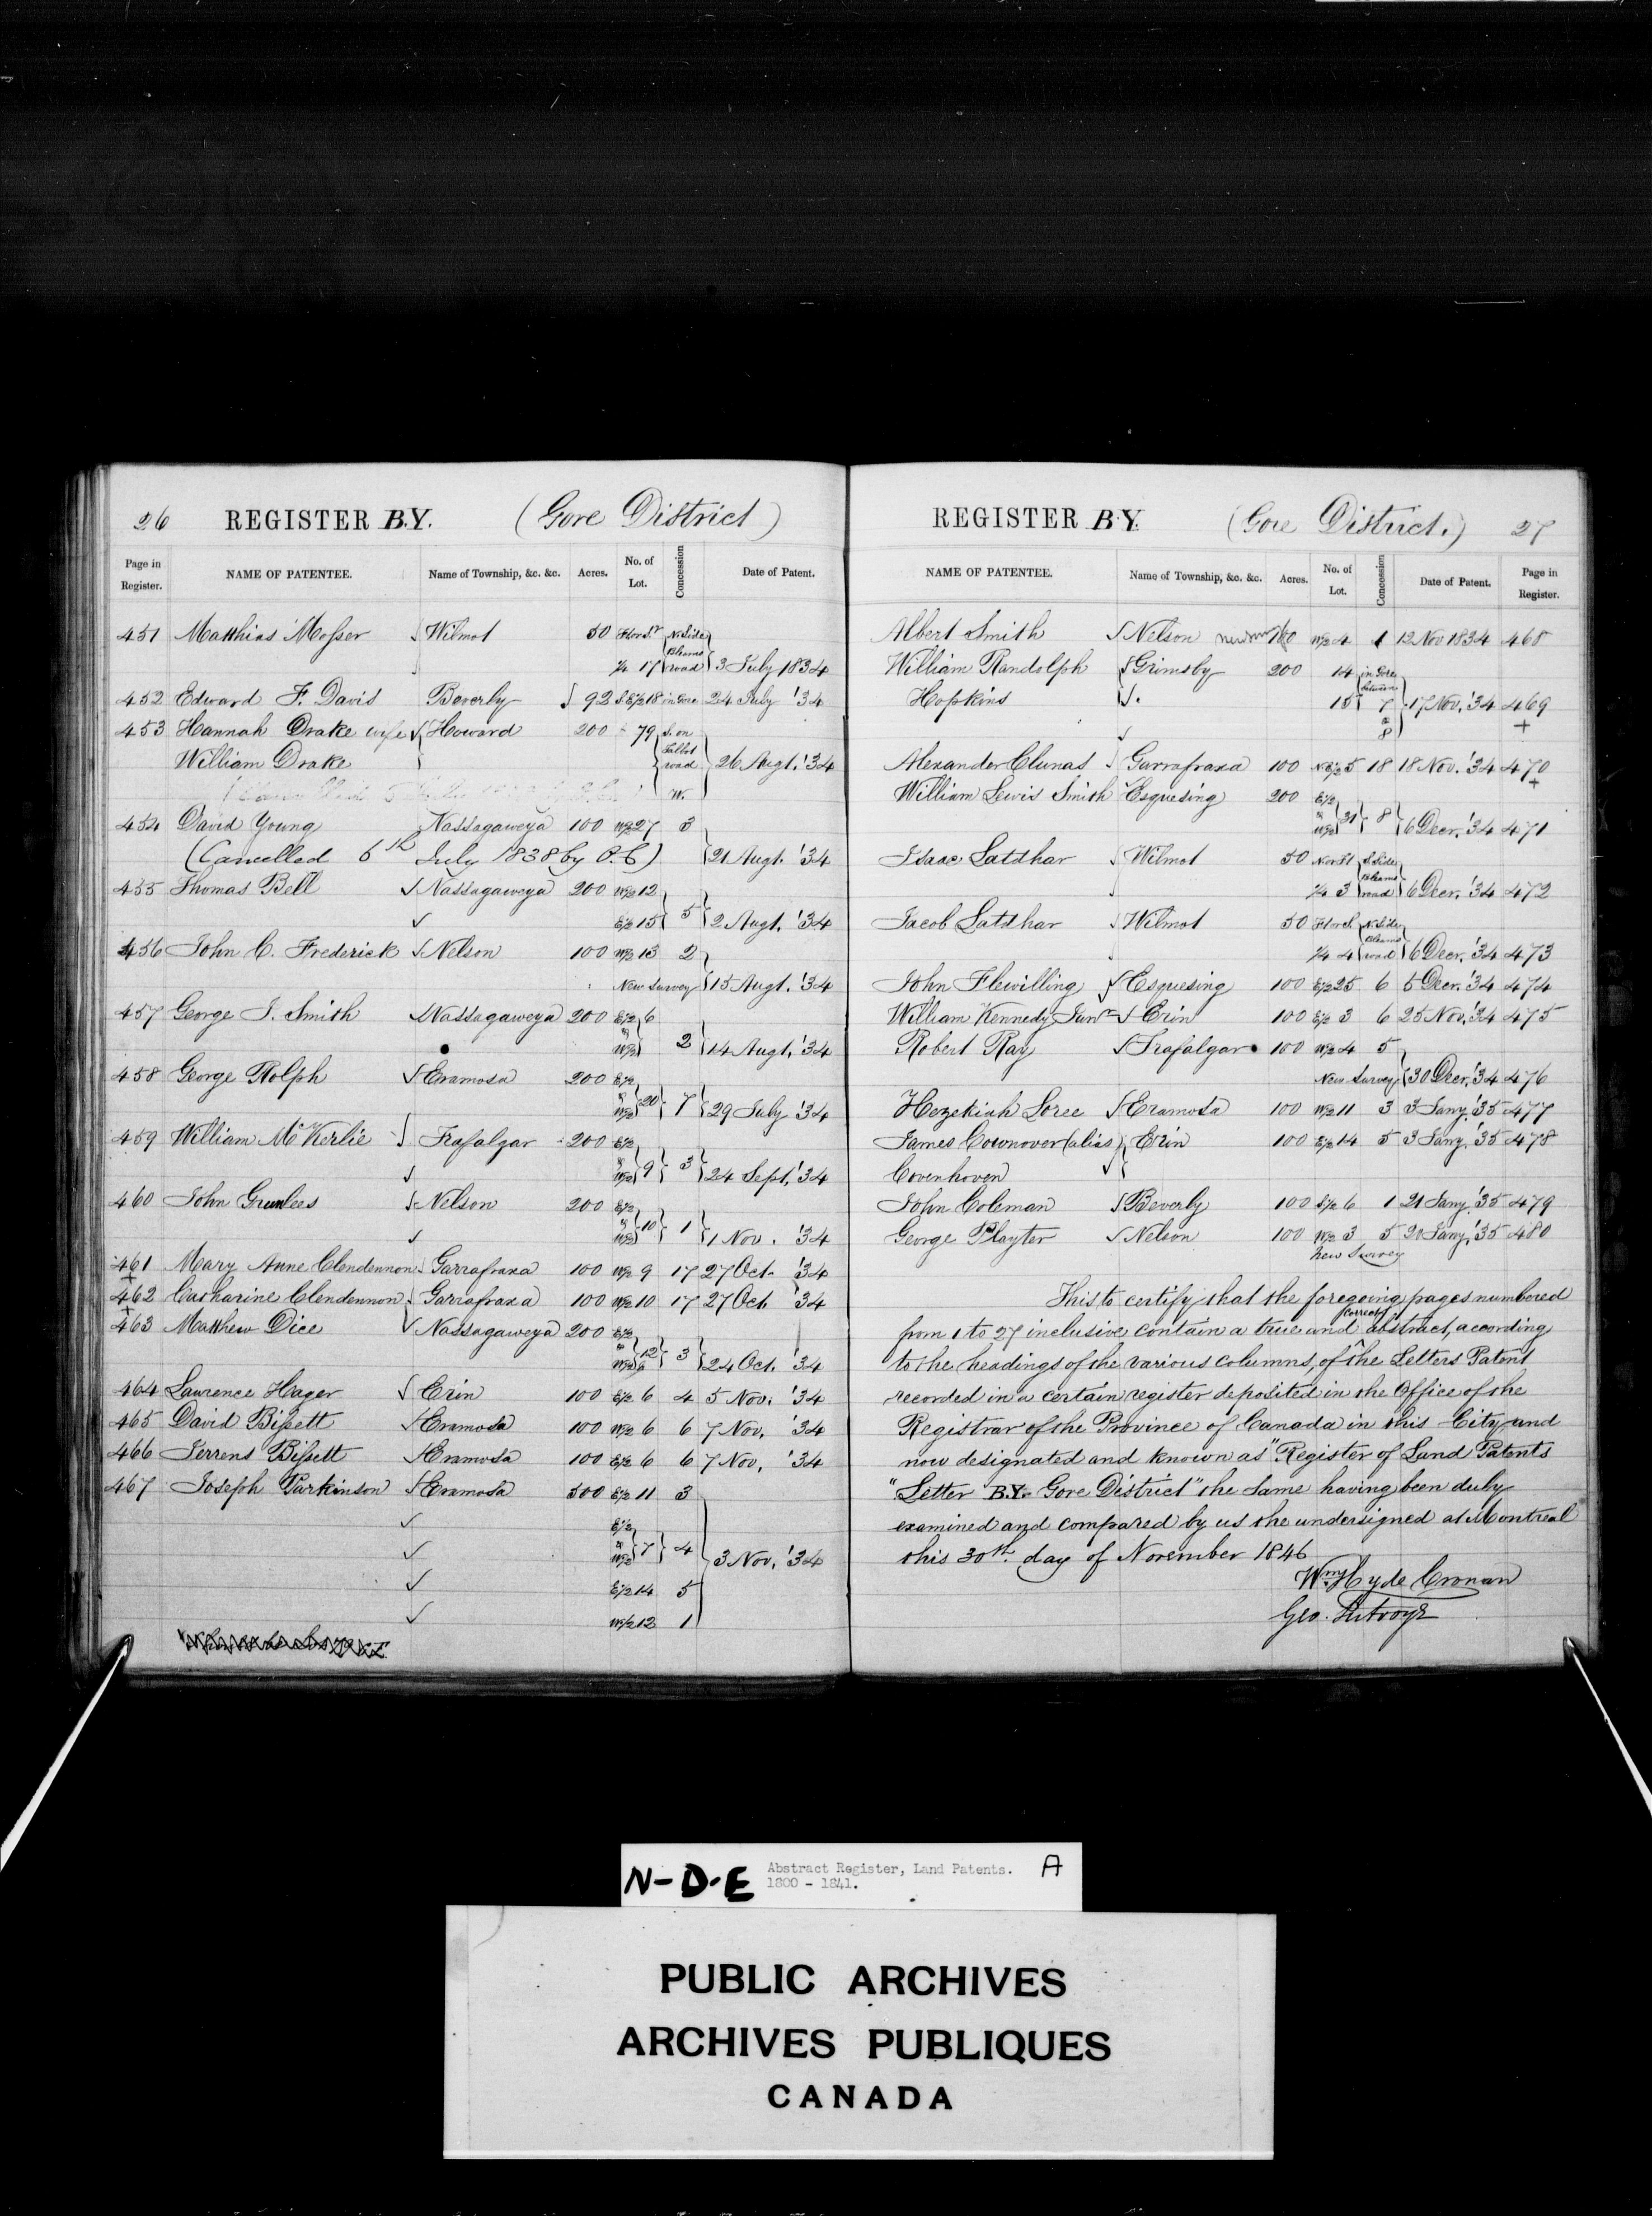 26 REGISTER B.Y. (Gore District)
Page in Register. NAME OF PATENTEE. Name of Township, &c. &c. Acres. No. of Lot. Concession Date of Patent.
451 Matthias Mosser Wilmot 50 N. Side
Bleams
1/4 17 road 3 July 1834
452 Edward F. Davis Beverly 92 S.E1/2 18 in Gore 24 July '34
453 Hannah Drake wife Howard 200 79 S. on
Talbot
William Drake road 26 Augt. '34
W.
454 David Young Nassagaweya 100 W1/2 27 3
(Cancelled 6th July 1838 by O.C) 21 Augt. '34
455 Thomas Bell Nassagaweya 200 W1/2 12
E1/2 15 5 2 Augt. '34
456 John C. Frederick Nelson 100 W1/2 13 2
New Survey 15 Augt. '34
457 George J. Smith Nassagaweya 200 E1/2 6
" W1/2 2 14 Augt. '34
458 George Rolph Eramosa 200 E1/2
" W1/2 20 7 29 July '34
459 William McKerlie Trafalgar 200 E1/2
" W1/2 9 3 24 Sept. '34
460 John Grunlees Nelson 200 E1/2
" W1/2 10 1 1 Nov. '34
461 Mary Anne Clendennon Garrafraxa 100 W1/2 9 17 27 Oct. '34
+
462 Catharine Clendennon Garrafraxa 100 W1/2 10 17 27 Oct '34
+
463 Matthew Dice Nassagaweya 200 E1/2
" W1/2 12 3 24 Oct. '34
464 Lawrence Hager Erin 100 E1/2 6 4 5 Nov. '34
465 David Bissett Eramosa 100 W1/2 6 6 7 Nov. '34
466 Terrens Bissett Eramosa 100 E1/2 6 6 7 Nov. '34
467 Joseph Parkinson Eramosa 500 E1/2 11 3
E1/2
" W1/2 7 4 3 Nov. '34
E1/2 14 5
W1/2 12 1
REGISTER B.Y. (Gore District.) 27
NAME OF PATENTEE. Name of Township, &c. &c. Acres. No. of Lot. Concession Date of Patent. Page in Register.
Albert Smith Nelson 100 W1/2 4 1 12 Nov 1834 468
William Randolph Grimsby 200 14 in Gore
between
Hopkins 15 7 17 Nov. '34 469
& 8 +
Alexander Clunas Garrafraxa 100 N.E1/2 5 18 18 Nov. '34 470
+
William Lewis Smith Esquesing 200 E1/2
" W1/2 31 8 6 Decr. '34 471
Isaac Latshar Wilmot 50 S. Side
Bleams
1/4 3 road 6 Decr. '34 472
Jacob Latshar Wilmot 50 N. Side
Bleams
1/4 4 road 6 Decr. '34 473
John Flewilling Esquesing 100 E1/2 25 6 5 Decr. '34 474
William Kennedy Junr Erin 100 E1/2 3 6 25 Nov. '34 475
Robert Ray Trafalgar 100 W1/2 4 5
New Survey 30 Decr. '34 476
Hezekiah Soree Eramosa 100 W1/2 11 3 3 Jany. '35 477
James Cownover (alias) Erin 100 E1/2 14 5 3 Jany. '35 478
Covenhoven
John Coleman Beverly 100 S1/2 6 1 21 Jany. '35 479
George Playter Nelson 100 W1/2 3 5 20 Jany. '35 480
New Survey
This to certify that the foregoing pages numbered
from 1 to 27 inclusive contain a true and correct abstract, according
to the headings of the various columns, of the Letters Patent
recorded in a certain register deposited in the Office of the
Registrar of the Province of Canada in this City and
now designated and known as "Register of Land Patents
"Letter B.Y. Gore District" the same having been duly
examined and compared by us the undersigned at Montreal
this 30th day of November 1846
Wm Hyde Cronan
N-D-E Abstract Register, Land Patents. A
1800 - 1841.
PUBLIC ARCHIVES
ARCHIVES PUBLIQUES
CANADA